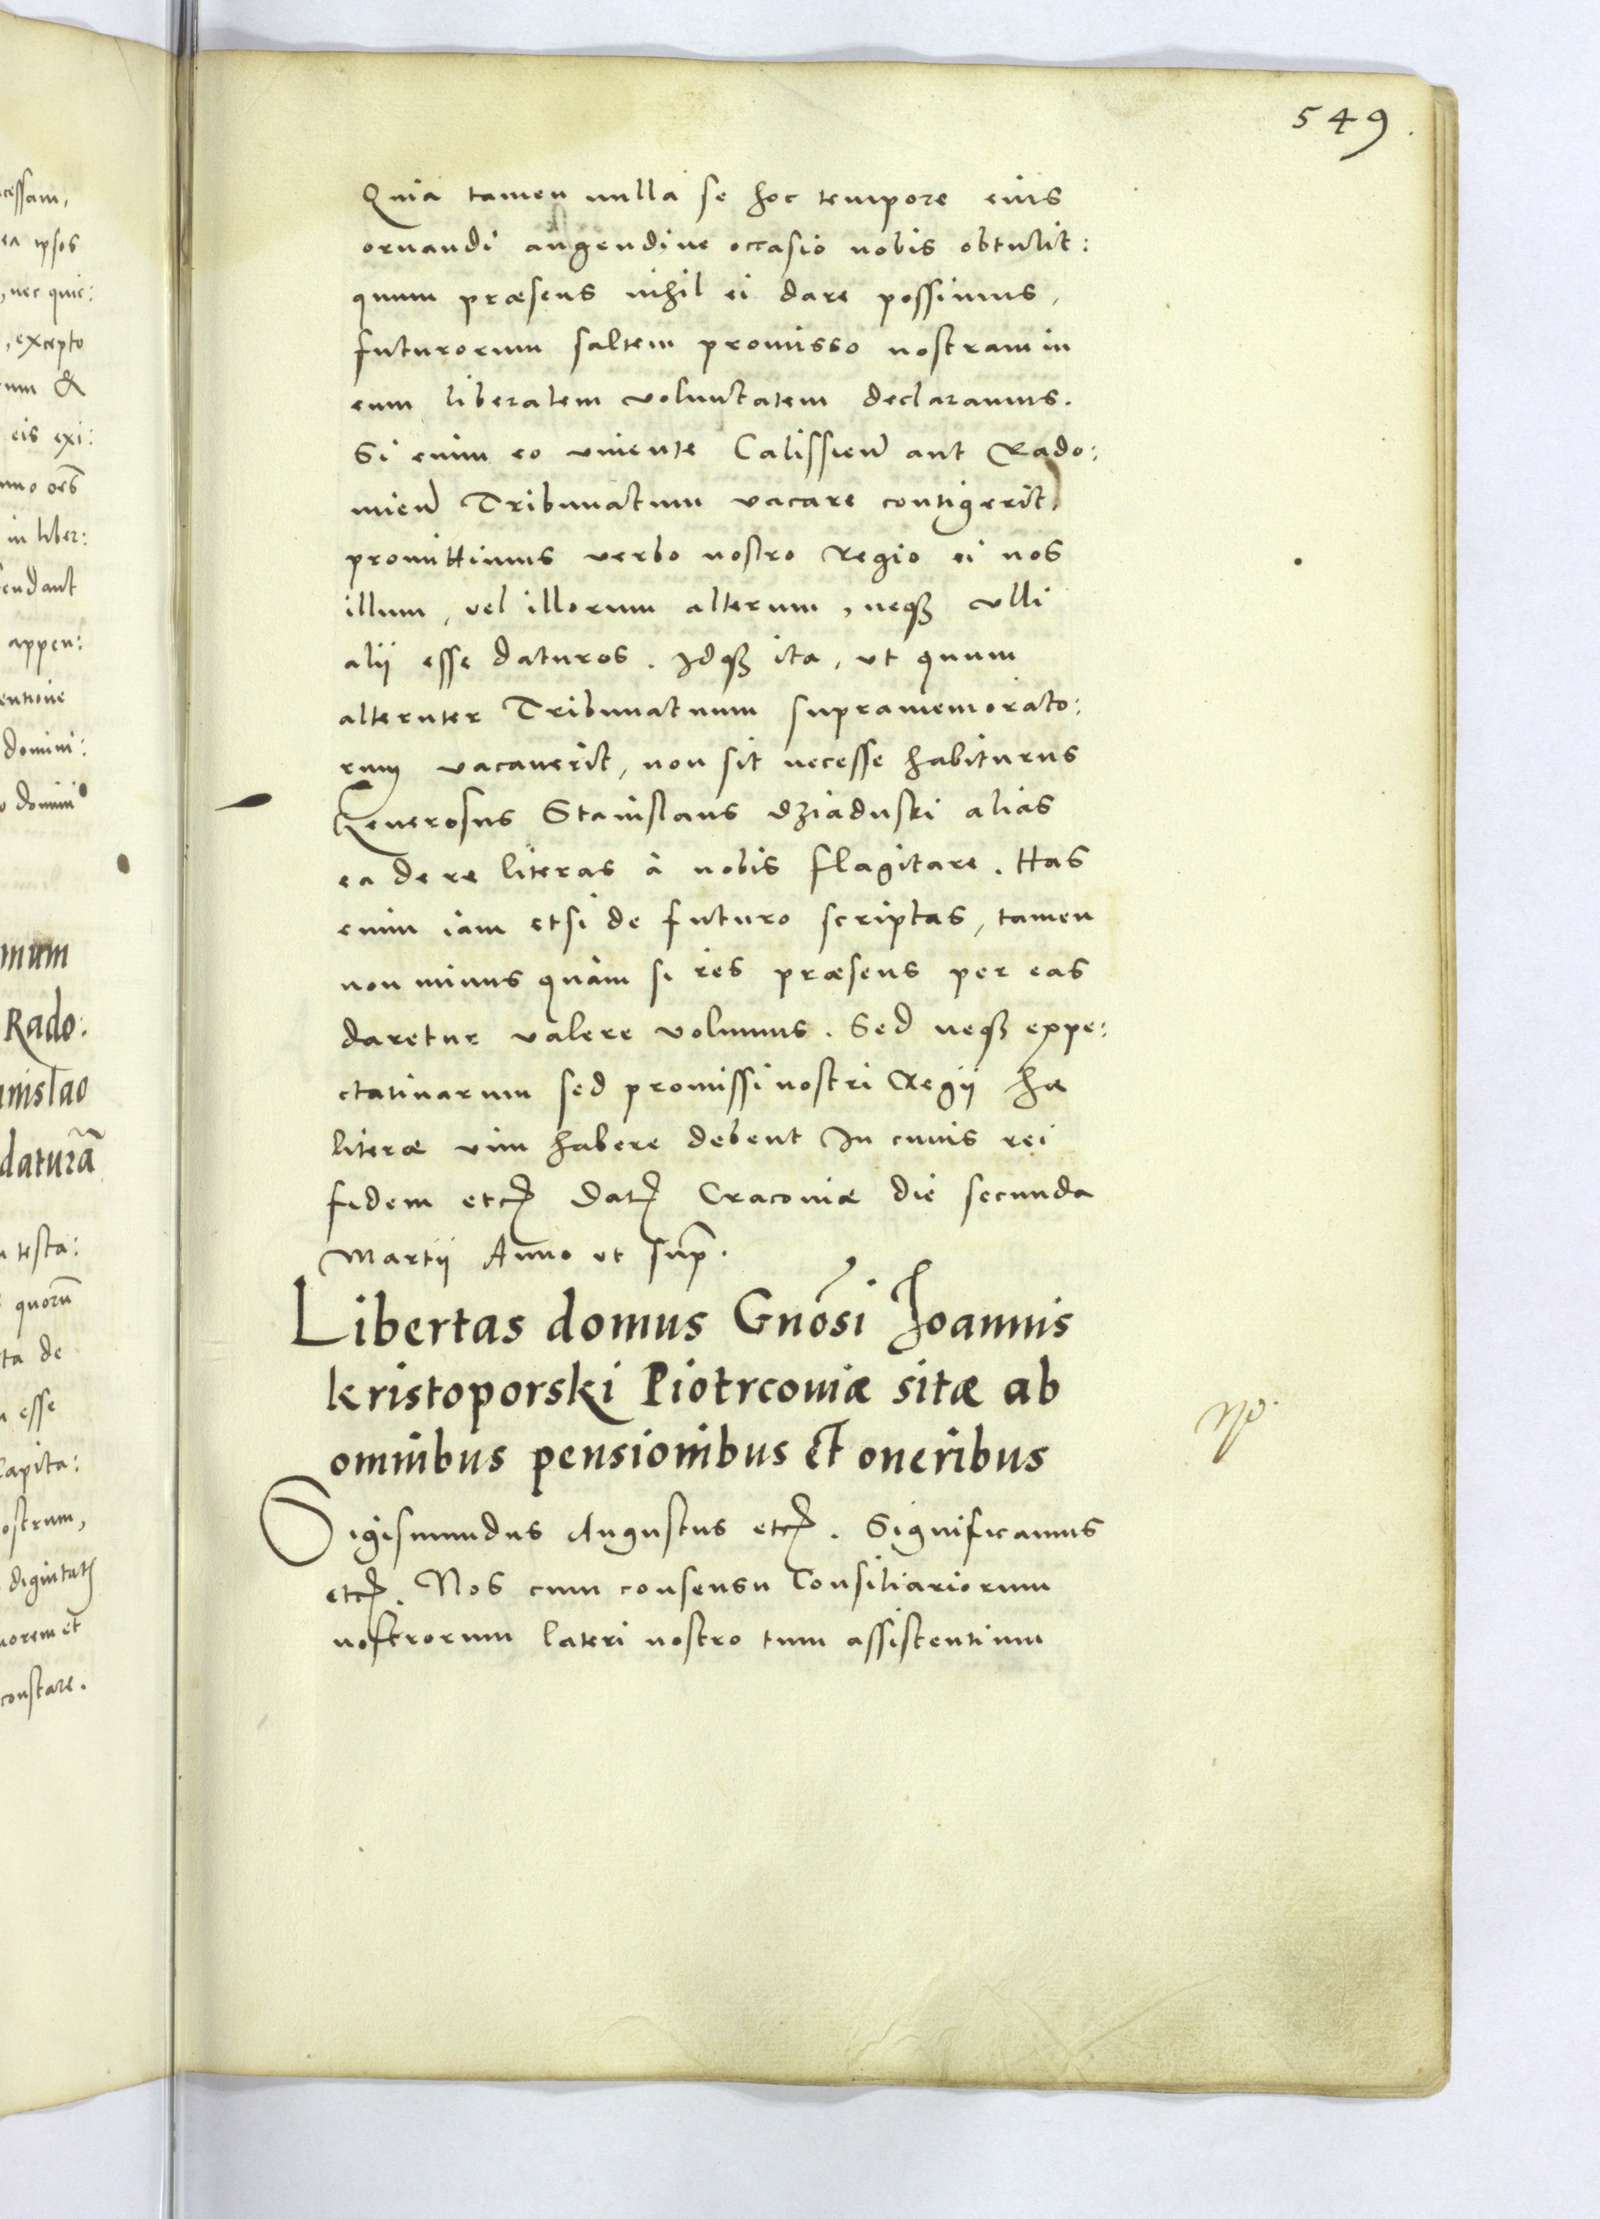 549.
Quia tamen nulla se hoc tempore eius
ornandi augendive occasio nobis obtulit:
quum præsens nihil ei dare possimus,
futurorum saltem promisso nostram in
eum liberalem voluntatem declaramus.
Si enim eo vivente Calissien aut Rado:
mien Tribunatum vacare contigerit,
promittimus verbo nostro Regio ei nos
illum, vel illorum alterum, neqȝ ulli
alii esse daturos. Idqȝ ita, ut quum
alteruter Tribunatuum supramemorato:
rum vacaverit, non sit necesse habiturus
Generosus Stanislaus Dziaduski alias
ea de re literas à nobis flagitare. Has
enim iam etsi de futuro scriptas, tamen
non minus quàm si res præsens per eas
daretur valere volumus. Sed neqȝ expe:
ctativarum sed promissi nostri Regii hæ
literæ vim habere debent In cuius rei
fidem etc Dat Cracoviæ die secunda
Martii Anno ut sup.
Libertas domus Gnosi Joannis
kristoporski Piotrcoviæ sitæ ab
omnibus pensionibus et oneribus
Sigismundus Augustus etc. Significamus
etc. Nos cum consensu Consiliariorum
nostrorum lateri nostro tum assistentium
cessam,
ea ipsos
, nec quic:
, excepto
eis exi:
in liber:
appen:
domini:
mum
Rado:
nislao
daturā
testa:
quorū
ta de
esse
Capita:
ostrum,
constare.